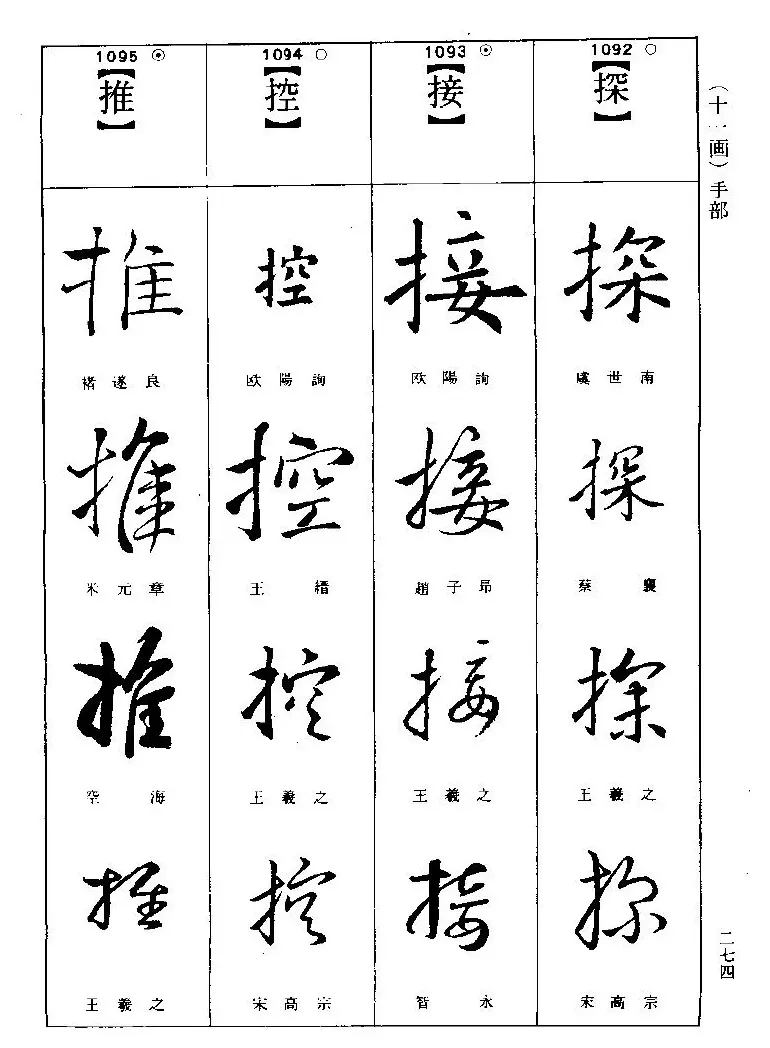 （十一画）手部
1092 ○
【探】
探
虞世南
探
蔡襄
探
王羲之
探
宋高宗
1093 ⊙
【接】
接
欧陽詢
接
趙子昂
接
王羲之
接
智永
1094 ○
【控】
控
欧陽詢
控
王縉
控
王羲之
控
宋高宗
1095 ⊙
【推】
推
褚遂良
推
米元章
推
空海
推
王羲之
二七四